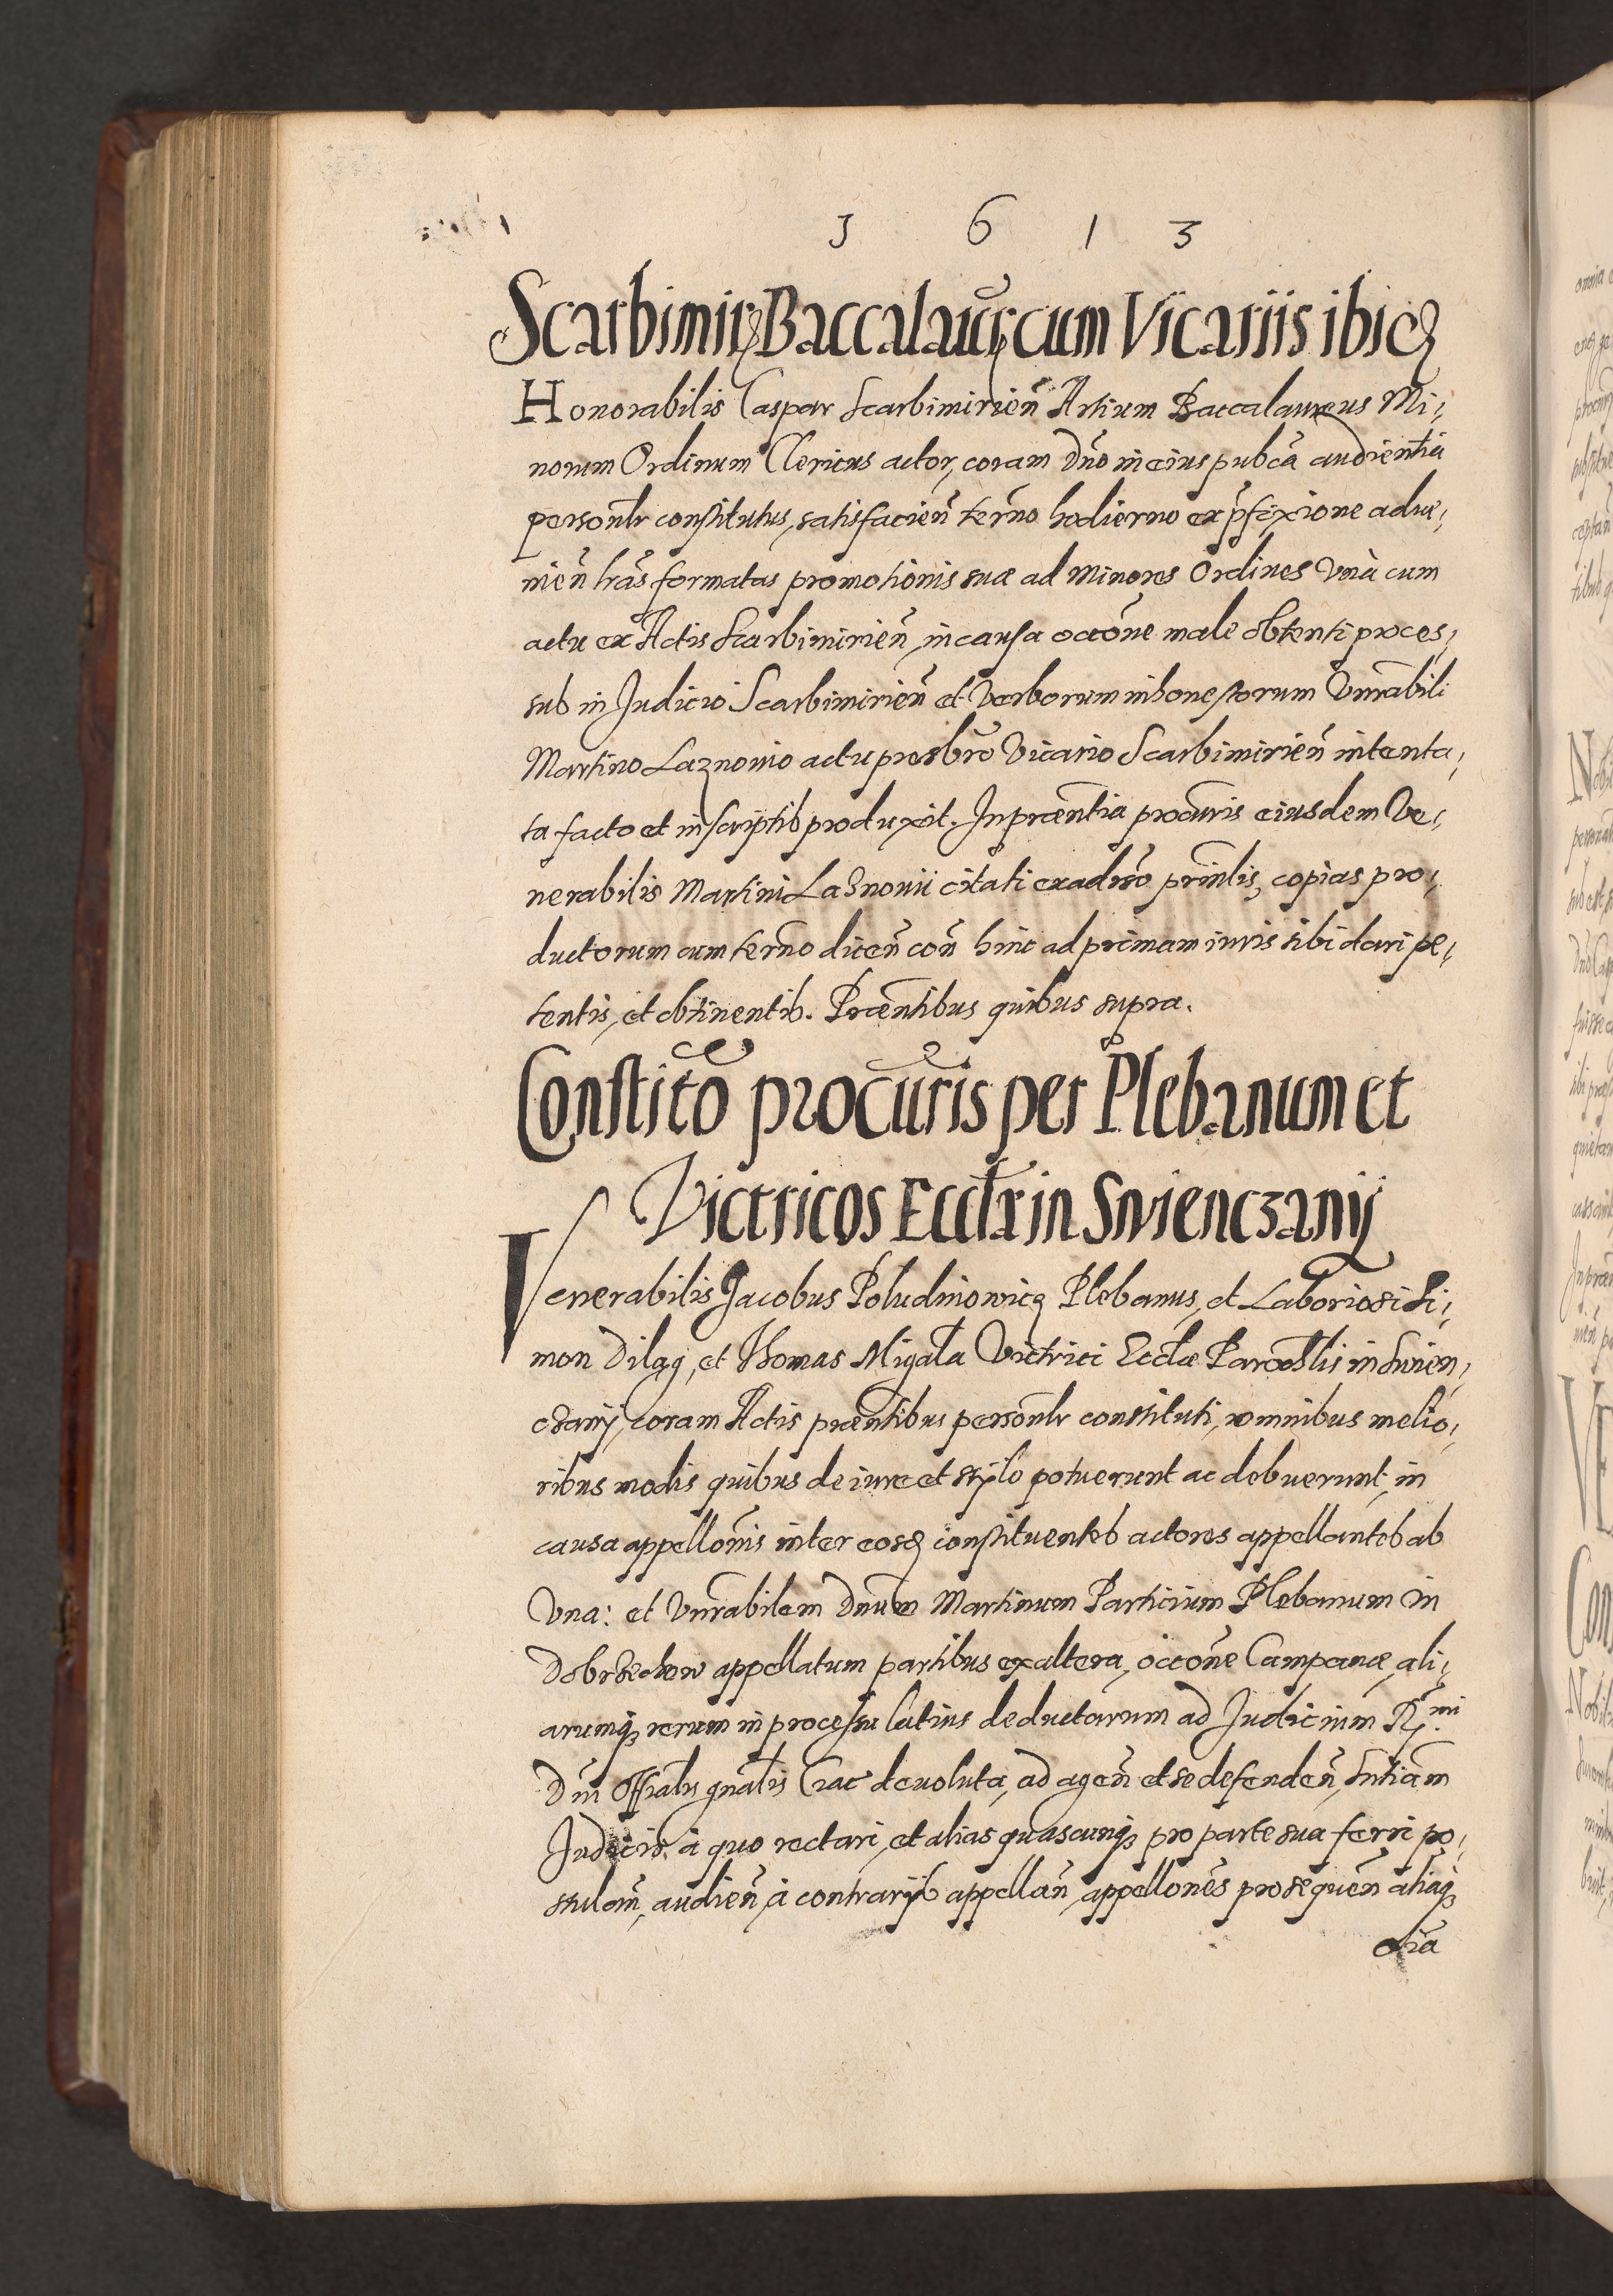 1 6 1 3
Scarbimir Baccalaur cum Vicariis ibid
Honorabilis Caspar Scarbimirien̄ Artium Baccalaureus Mi,
norum Ordinum Clericus actor, coram Dn̄o in eius pub̄ca audientia
person̄lr constitutus, satisfacien̄ term̄no hodierno ex p̄fixione adue,
nien̄ l̄ras formatas promotionis suæ ad Minores Ordines Vnà cum
actu ex Actis Scarbimirien̄, in causa occōne male obtenti proces,
sus in Judicio Scarbimirien̄ et Verborum inhonestorum Vn̄rabili
Martino Laznowio actu presb̄ro Vicario Scarbimirien̄ intenta,
ta facto et in scriptis produxit. In præn̄tia procuris eiusdem Ve,
nerabilis Martini Lasnovii citati ex aduso prin̄lis, copias pro,
ductorum cum term̄no dicen̄ con̄ hinc ad primam iuris sibi dari pe,
tentis, et obtinentis. Præn̄tibus quibus supra.
Constitō procūris per Plebanum et
Victricos Eccl̄æ in Swienczanÿ
Venerabilis Jacobus Poludniowicz Plebanus, et Laboriosi Si,
mon Diląg, et Thomas Migała Victrici Eccl̄æ Parochlis in Swien,
czanÿ, coram Actis præn̄tibus person̄lr constituti, omnibus melio,
ribus modis quibus de iure et stÿlo potuerunt ac debuerunt, in
causa appellōnis inter eosd constituentes actores appellantes ab
Vna: et Vn̄rabilem Dnum Martinum Particium Plebanum in
Dobrzechow appellatum partibus ex altera, occōne Campanæ, ali,
arumq rerum in processu latius deductarum ad Judicium R.mi
Dn̄i Offialis gn̄alis Crac deuoluta, ad agen̄ et se defenden̄, sn̄tiam
Judicis à quo rectari, et alias quascunq pro parte sua ferri po,
stulan̄, audien̄, à contrarÿs appellan̄, appellōnes prosequen̄ aliaq
oīa